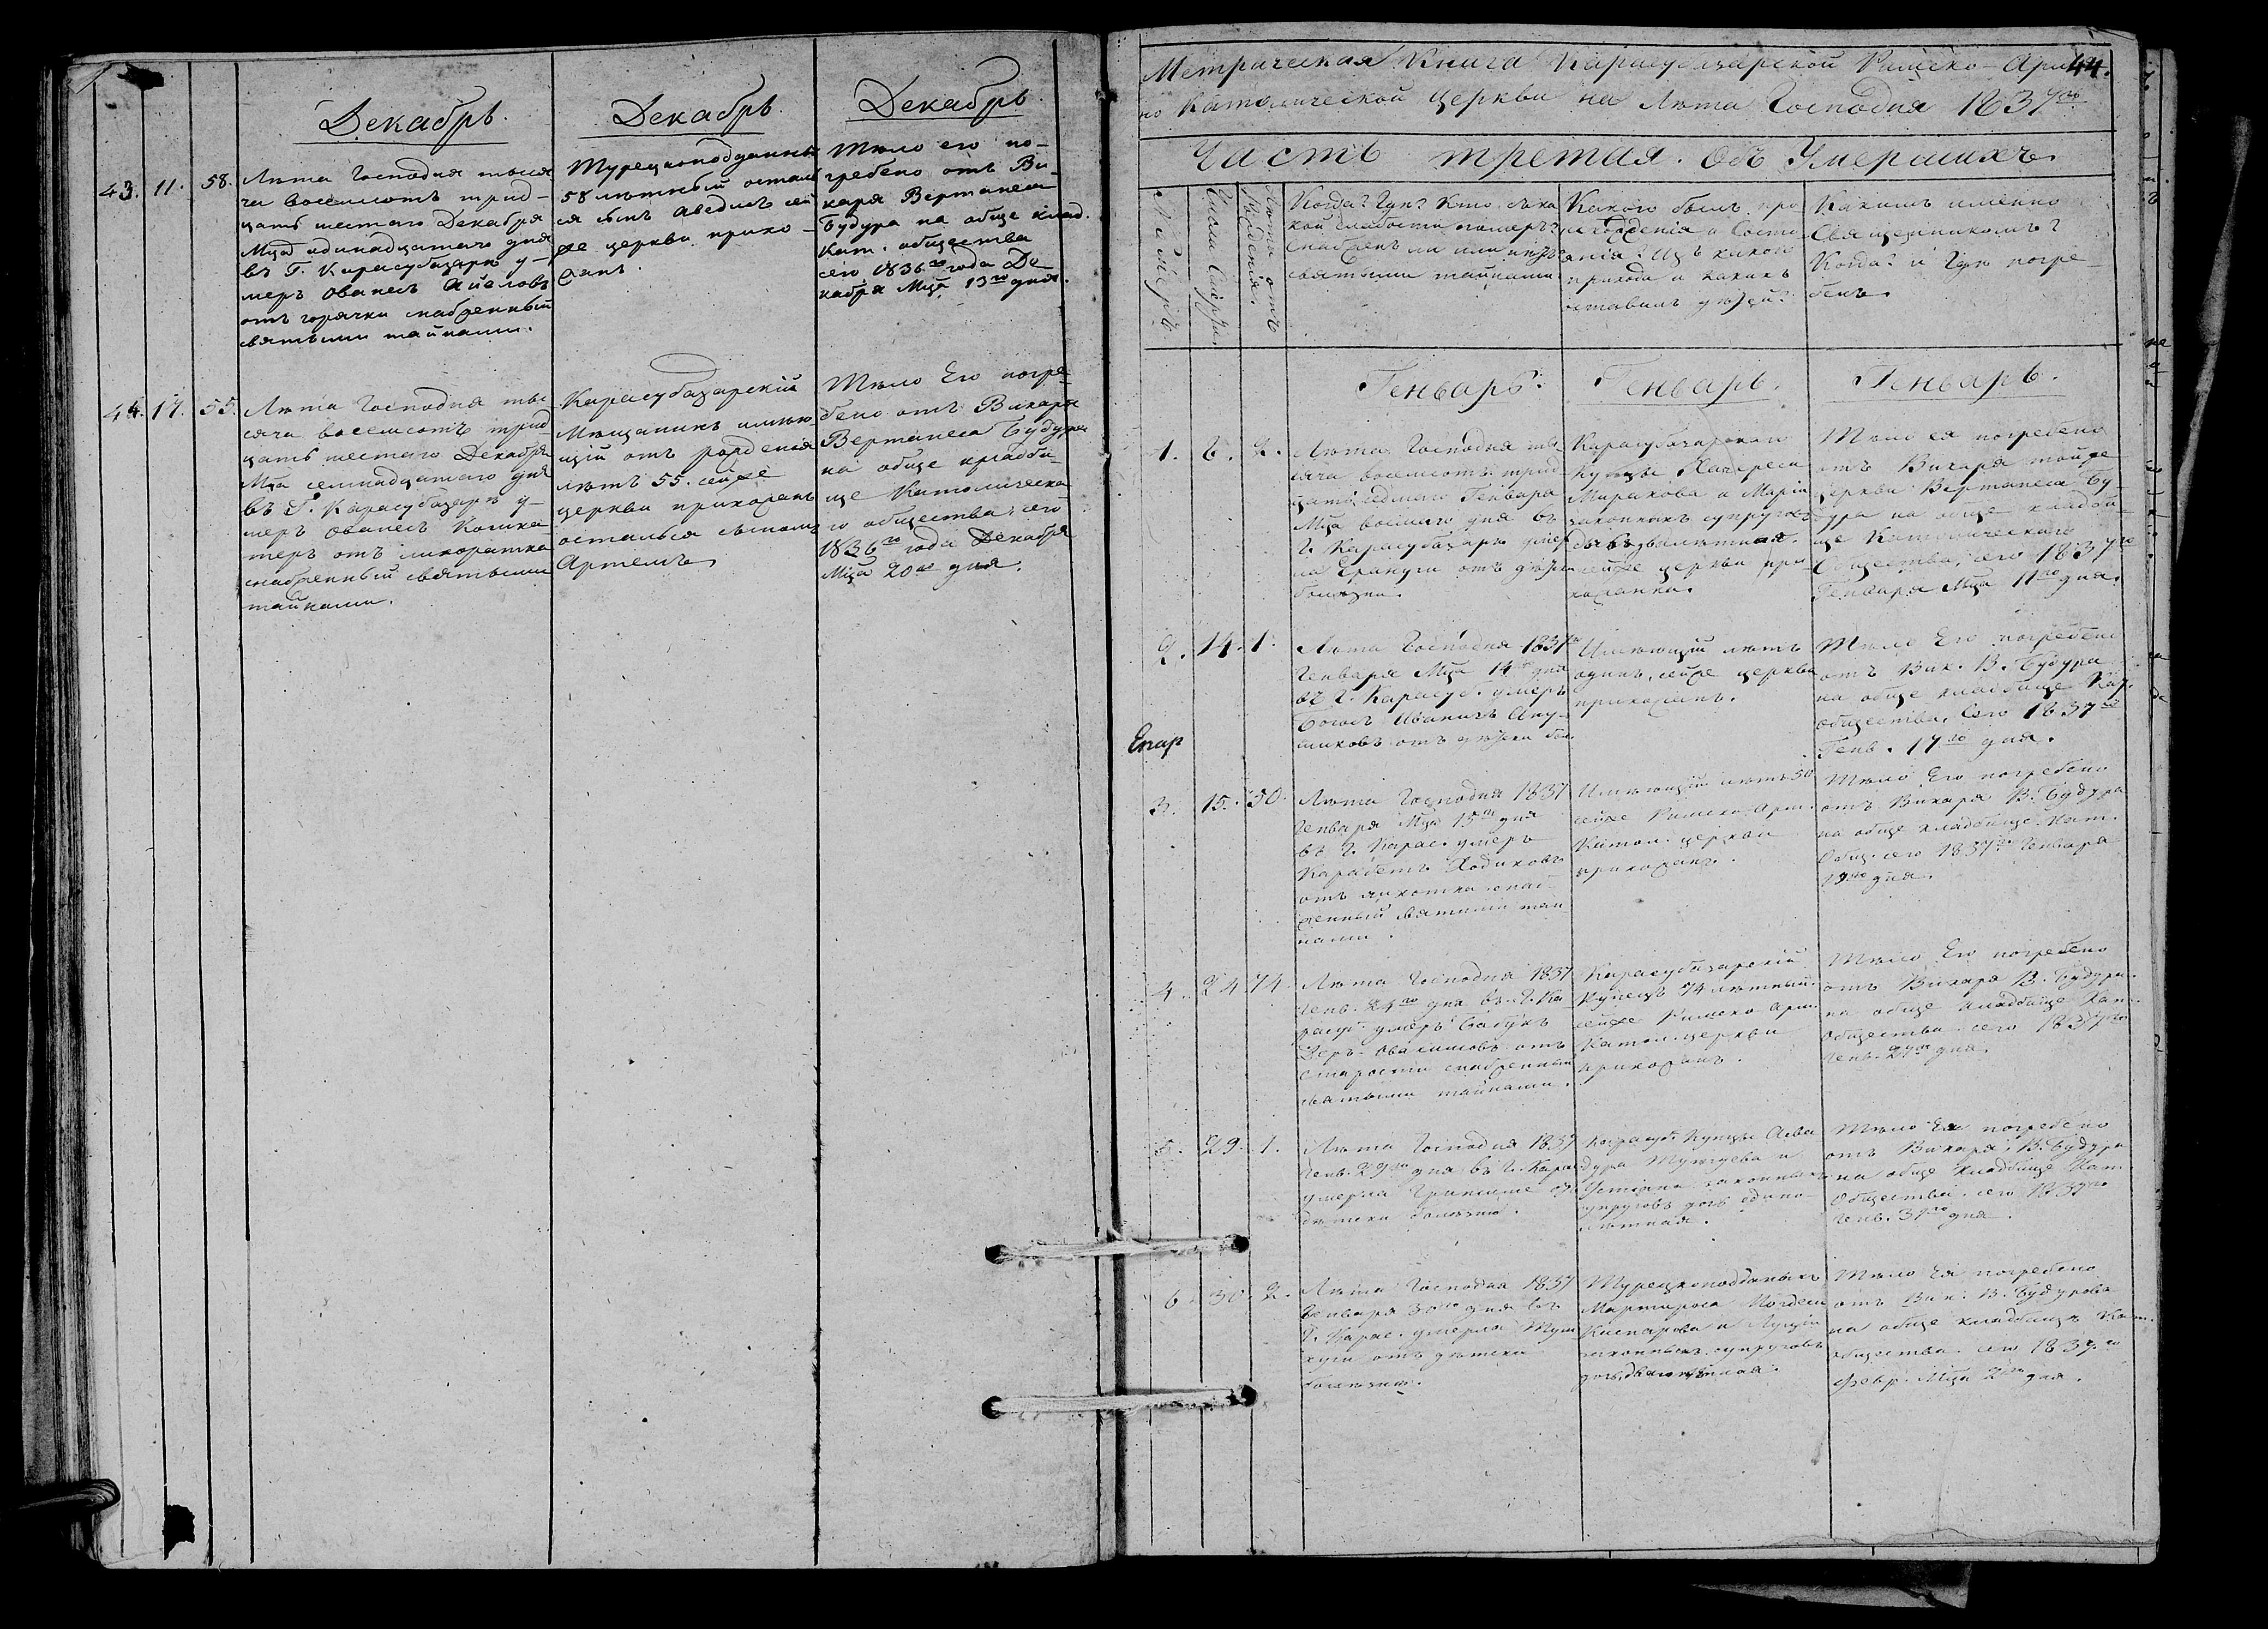 Декабрь.
Декабрь.
Декабрь.
43. 11. 58.
Лѣта Господня тыся
ча восемсотъ трид-
цать шестаго Декабря
Мца одинадцатаго дня
въ Г. Карасубазарѣ у-
меръ Ованесъ Айваловъ
отъ горячки снабженный
святыми тайнами.
Турецкоподданный
58 лѣтный остал
ся сынъ Аведикъ сей
же церкви прихо-
жанъ.
Тѣло его по-
гребено отъ Ви-
каря Вертанеса
Будура на обще клад.
Кат. общества
сего 1836го года Де-
кабря Мца 13го дня.
44. 17. 55.
Лѣта Господня ты-
сяча восемсотъ трид-
цать шестаго Декабря
Мца семнадцатаго дня
въ Г. Карасубазарѣ у-
меръ Ованесъ
отъ лихоратка
снабженный святыми
тайнами.
Карасубазарскій
Мѣщанинъ имѣю-
щій отъ рожденія
лѣтъ 55. сей же
церкви прихожанъ
остался сыномъ
Артемъ
Тѣло Его погре-
бено отъ Викаря
Вертанеса Будура
на обще кладби-
ще Католическа-
го общества сего
1836го года Декабря
Мца 20го дня.
44.
Метрическая Книга Карасубазарской Римско-Армя-
но Католической Церкви на Лѣта Господня 1837го
Часть третая. Объ Умершихъ.
Лѣта отъ
рожденія.
Когда? Гдѣ? Кто, съ ка
кой слабости померъ?
Снабженъ ли или нѣтъ
святыми тайнами
Какого былъ про
исхожденія и Состо-
янія? Изъ какого
прихода и какихъ
оставилъ дѣтей?
Какимъ именно
Священникомъ?
Когда? и Гдѣ погре-
бенъ.
Генварь.
Генварь.
Генварь.
1. 8. 2.
Лѣта Господня ты-
сяча восемсотъ трид
цать седмого Генваря
Мца восмаго дня въ
Г. Карасубазарѣ умер
ла Ерануги отъ дѣтск
болѣзни.
Карасубазарскаго
Купцы
Миракова и Маріи
законныхъ супруговъ
дочь двалѣтная.
сей же церкви при-
хожанка.
Тѣло ея погребено
отъ Викаря той же
церкви Вертанеса Бу-
дура на обще кладби-
ще Католическаго
Общества, сего 1837го
Генваря Мца 11го дня.
2. 14. 1.
Лѣта Господня 1837го
Генваря Мца 14го дня
въ Г. Карасуб. умеръ
Богосъ Иванисъ
отъ дѣтски бол
Имѣющій лѣтъ
одинъ, сей же церкви
прихожанъ.
Тѣло Его погребено
отъ Вик. В. Будура
на обще кладбище Кат.
общества, сего 1837го
Генв. 17го дня.
Енар
3. 15. 50.
Лѣта Господня 1837
Генваря Мца 15го дня
въ Г. Карас. умеръ
Карабетъ Ходжиковъ
отъ чихотка снаб-
женный святыми тай-
нами.
Имѣющій лѣтъ 50
сей же Римско Арм.
Катол. церкви
прихожанъ.
Тѣло Его погребено
отъ Викаря В. Будура
на обще кладбище Кат.
Общ. сего 1837го Генваря
дня.
4. 24 74.
Лѣта Господня 1837
Генв. 24го дня въ Г. Ка
расуб. умеръ Бабукъ
Деръ-Овакимовъ отъ
старости снабженный
святыми тайнами.
Карасубазарскій
Купецъ 74 лѣтный.
сей же Римско Арм.
Католи. церкви
прихожанъ.
Тѣло Его погребено
отъ Викаря В. Будура
на обще кладбище Кат.
Общества сего 1837го
Генв. 27го дня.
5. 29. 1.
Лѣта Господня 1837
Генв. 29го дня въ Г. Карас
умерла Грипсиме от
дѣтски болѣзни.
Карасуб. Купцы Асва
дура и
законныхъ
супруговъ дочь едино-
лѣтная.
Тѣло Ея погребено
отъ Викаря, В. Будура
на обще кладбище Кат.
Общества, сего 1837го
Генв. 31го дня.
6. 30. 2.
Лѣта Господня 1837
Генваря 30го дня въ
Г. Карас. умерла
отъ дѣтски
болѣзни.
Турецкоподданныхъ
Мартироса
Каспарова и Лусіи
законныхъ супруговъ
дочь, двалѣтная.
Тѣло Ея погребено
отъ Вик. В. Будурова
на обще кладбищѣ Кат.
общества сего 1837го
Февр. Мца 2го дня.